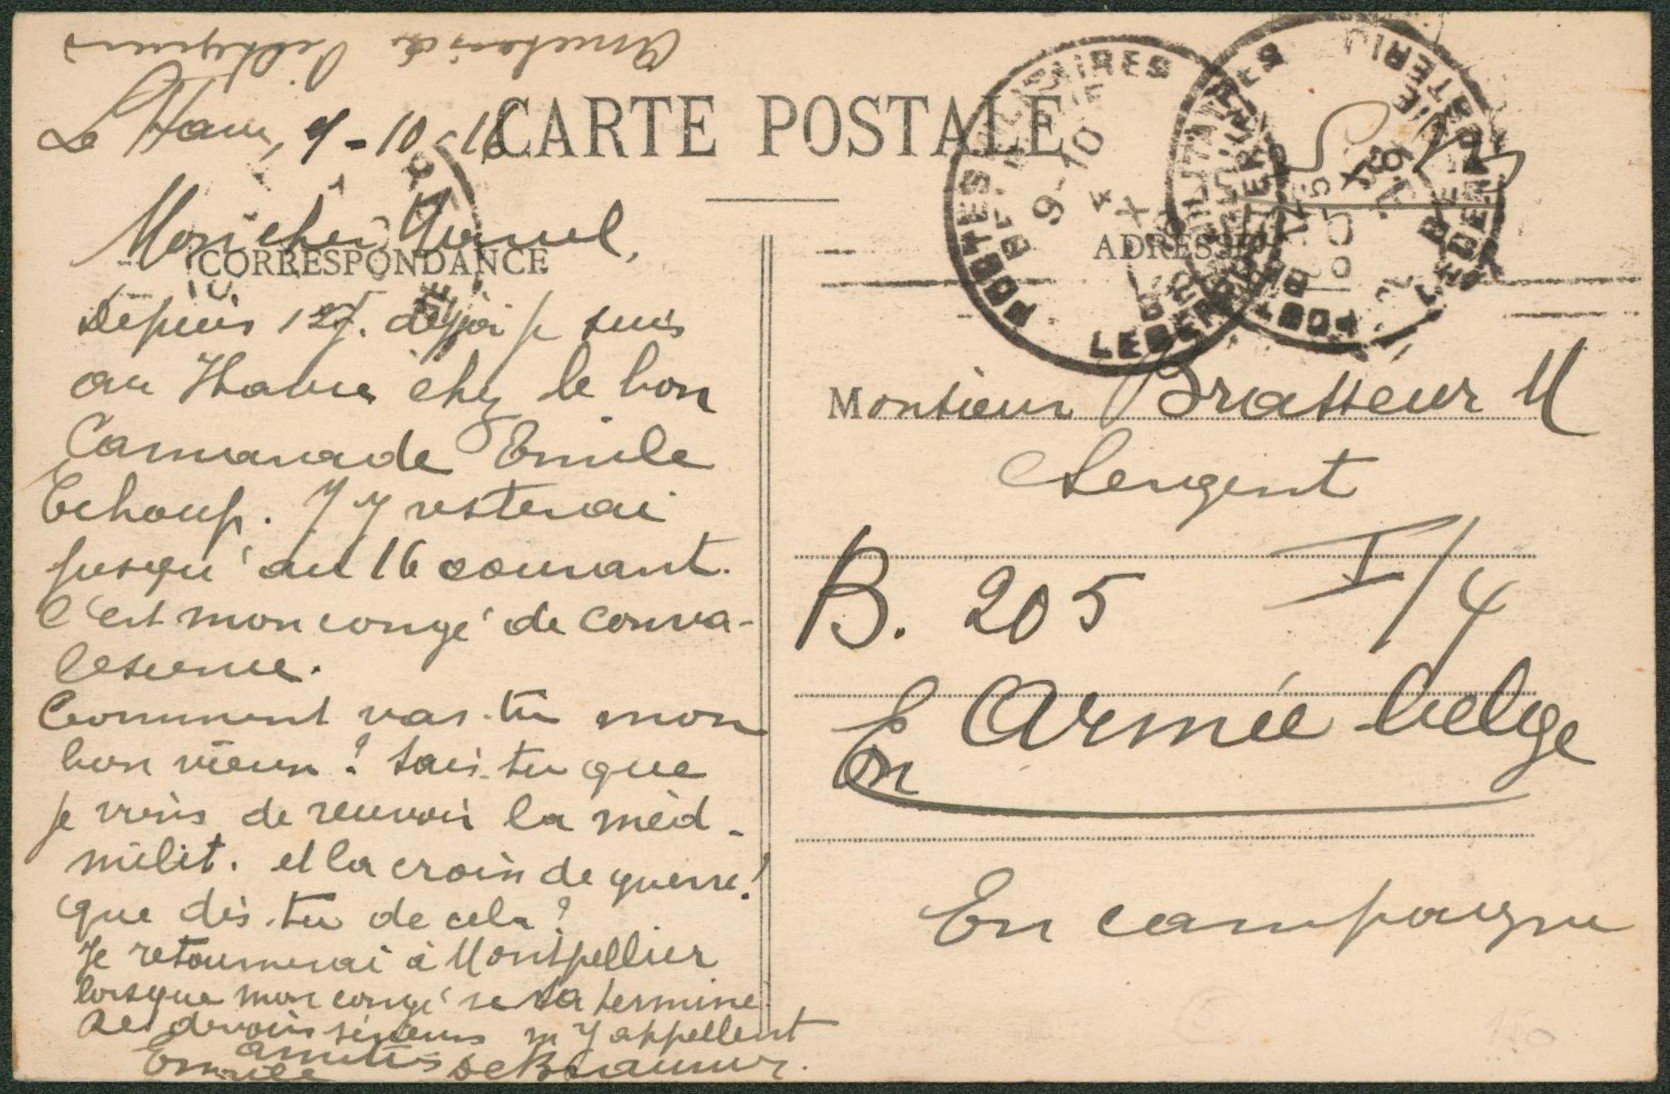 Le Havre, 9-10-16
CARTE POSTALE
CORRESPONDANCE
ADRESSE
Mon cher Marcel,
Depuis 12 j. déjà je suis
au Havre chez le bon
Camarade Emile
J'y resterai
jusqu'au 16 courant.
C'est mon congé de conva-
lescence.
Comment vas-tu mon
bon vieux ? Sais-tu que
je viens de recevoir la méd-
milit. et la croix de guerre !
que dis-tu de cela ?
Je retournerai à Montpellier
lorsque mon congé se sera terminé
Des devoirs sérieux m'y appellent
Amitiés
Emile
Monsieur Brasseur M
Sergent
B. 205 I/4
En Armée belge
En campagne
POSTES MILITAIRES
BELGIQUE
9-10
X
POSTES MILITAIRES